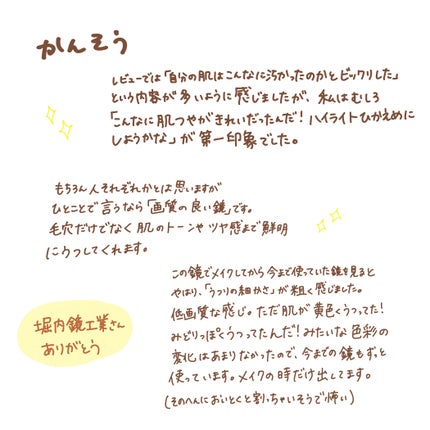 かんそう
レビューでは「自分の肌はこんなに汚かったのかとビックリした」
という内容が多いように感じましたが、私はむしろ
「こんなに肌つやがきれいだったんだ！ハイライトひかえめに
しようかな」が第一印象でした。
もちろん人それぞれかとは思いますが
ひとことで言うなら「画質の良い鏡」です。
毛穴だけでなく肌のトーンやツヤ感まで鮮明
にうつしてくれます。
この鏡でメイクしてから今まで使っていた鏡を見ると
やはり、「うつりの細かさ」が粗く感じました。
低画質な感じ。ただ肌が黄色くうつってた！
みどりっぽくうつってたんだ！みたいな色彩の
変化はあまりなかったので、今までの鏡もずっと
使っています。メイクの時だけ出してます。
（そのへんにおいとくと割っちゃいそうで怖い）
堀内鏡工業さん
ありがとう